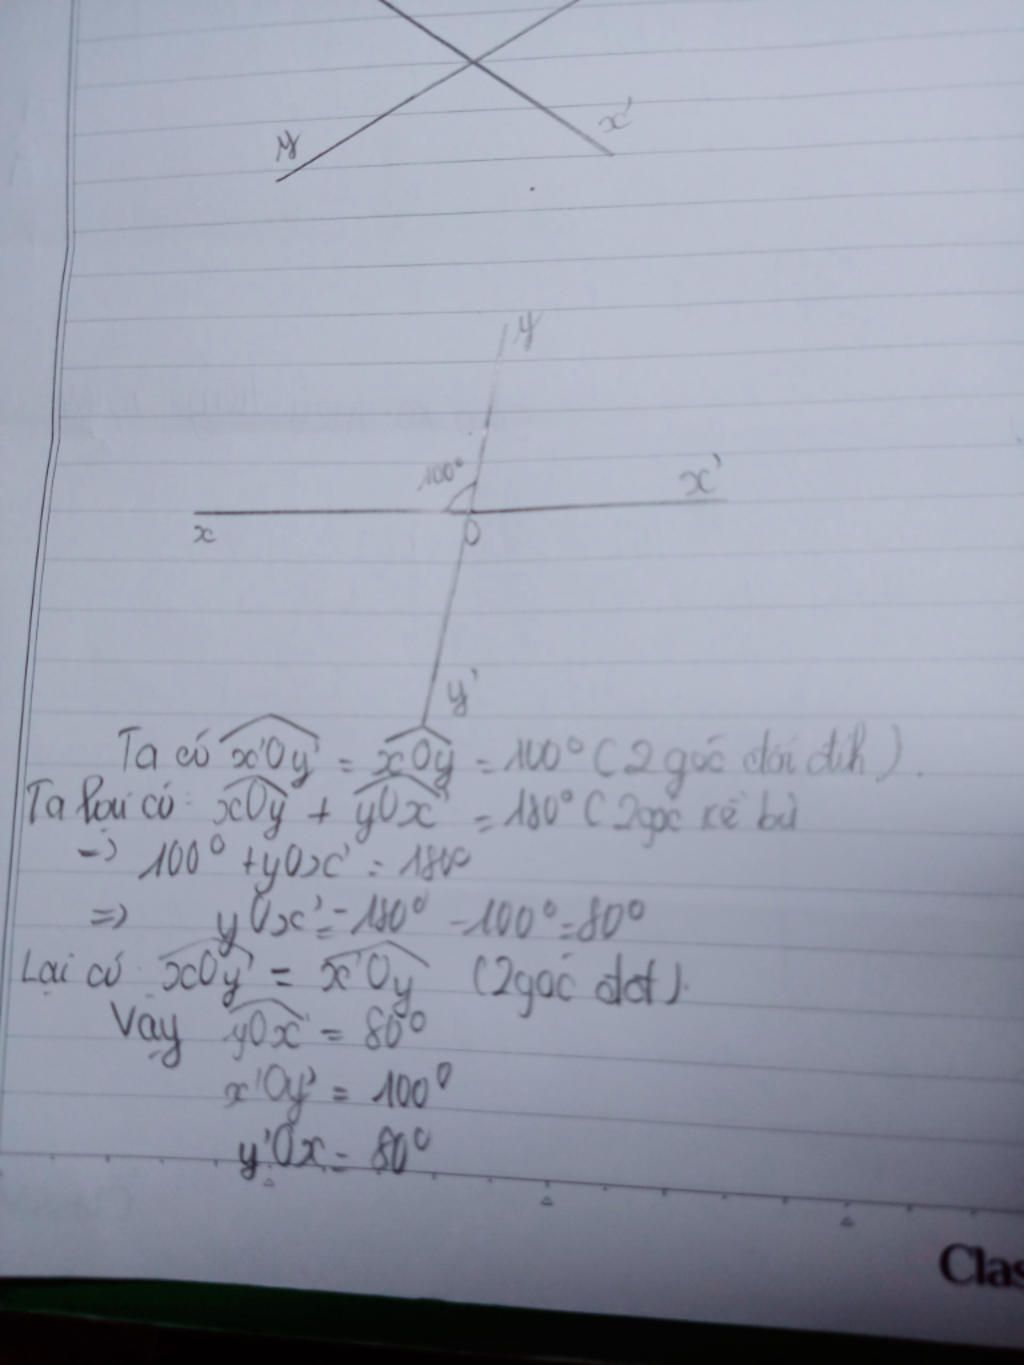 y
x'
y
100°
x'
x
O
y'
Ta có x'Oy' = xOy = 100° (2 góc đối đỉh).
Ta lại có: xOy + yOx' = 180° (2 góc kề bù
=> 100° + yOx' = 180°
=> yOx' = 180° - 100° = 80°
Lại có xOy' = x'Oy (2 góc đđ).
Vậy yOx' = 80°
x'Oy' = 100°
y'Ox = 80°
Clas